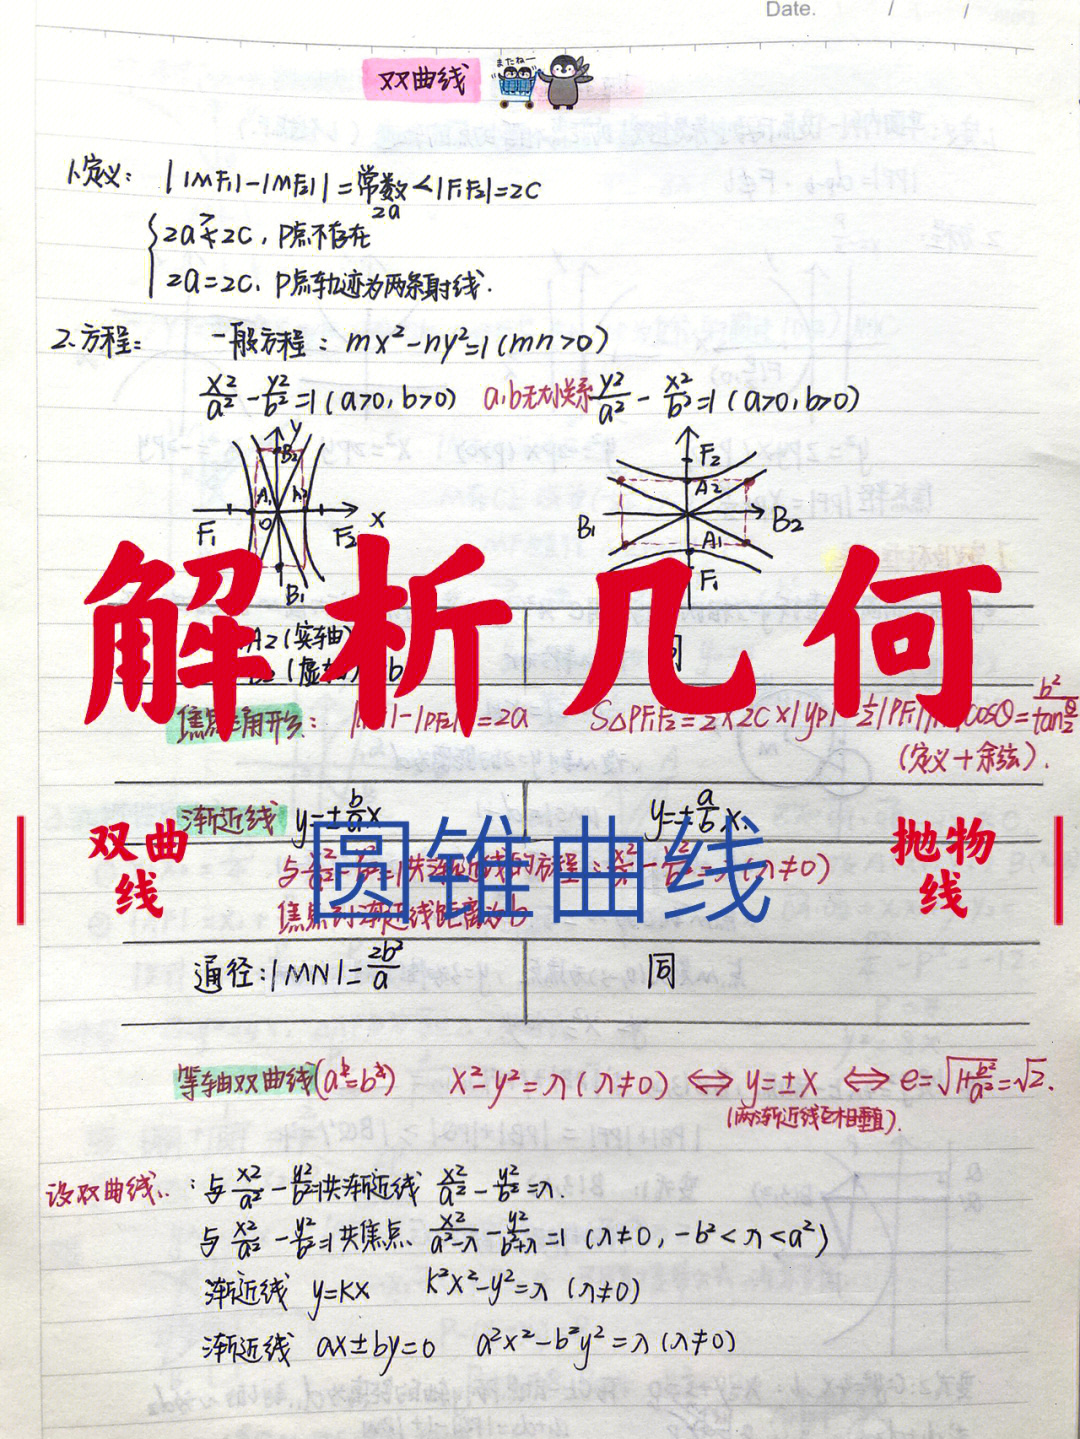 Date. / /
双曲线
またねー
1.定义： | |MF₁|-|MF₂| | = 常数 < |F₁F₂| = 2C
2a
2a > 2C，P点不存在
2a = 2C，P点轨迹为两条射线.
2.方程： 一般方程：mx²-ny²=1 (mn>0)
x²/a² - y²/b² = 1 (a>0, b>0) a,b无大小关系 y²/a² - x²/b² = 1 (a>0, b>0)
y B₂ A₁ A₂ O F₁ F₂ x B₁
F₂ A₂ B₁ B₂ A₁ F₁
解析几何
A₂ (实轴)
(虚轴) b
焦点三角形： -|PF₂| = 2a S△PF₁F₂ = ½×2C×|yp| ½|PF₁| cosθ = b²/tan θ/2
(定义+余弦).
渐近线 y=±b/a x y=±a/b x.
双曲线 圆锥曲线 抛物线
与 x²/a² - y²/b² = 1共渐近线的方程：x²/a² - y²/b² = λ (λ≠0)
焦点到渐近线距离为b
通径：|MN| = 2b²/a 同
等轴双曲线(a²=b²) x²-y²=λ (λ≠0) ⇔ y=±x ⇔ e=√(1+b²/a²)=√2.
(两渐近线互相垂直).
设双曲线：与 x²/a² - y²/b² = 1共渐近线 x²/a² - y²/b² = λ.
与 x²/a² - y²/b² = 1 共焦点 x²/(a²-λ) - y²/(b²+λ) = 1 (λ≠0, -b²<λ<a²)
渐近线 y=kx k²x²-y²=λ (λ≠0)
渐近线 ax±by=0 a²x²-b²y²=λ (λ≠0)